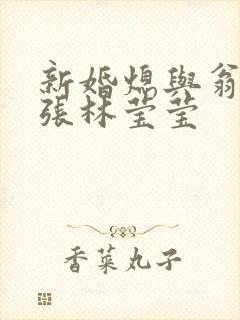 新婚媳與翁
張林莹莹
香菜丸子